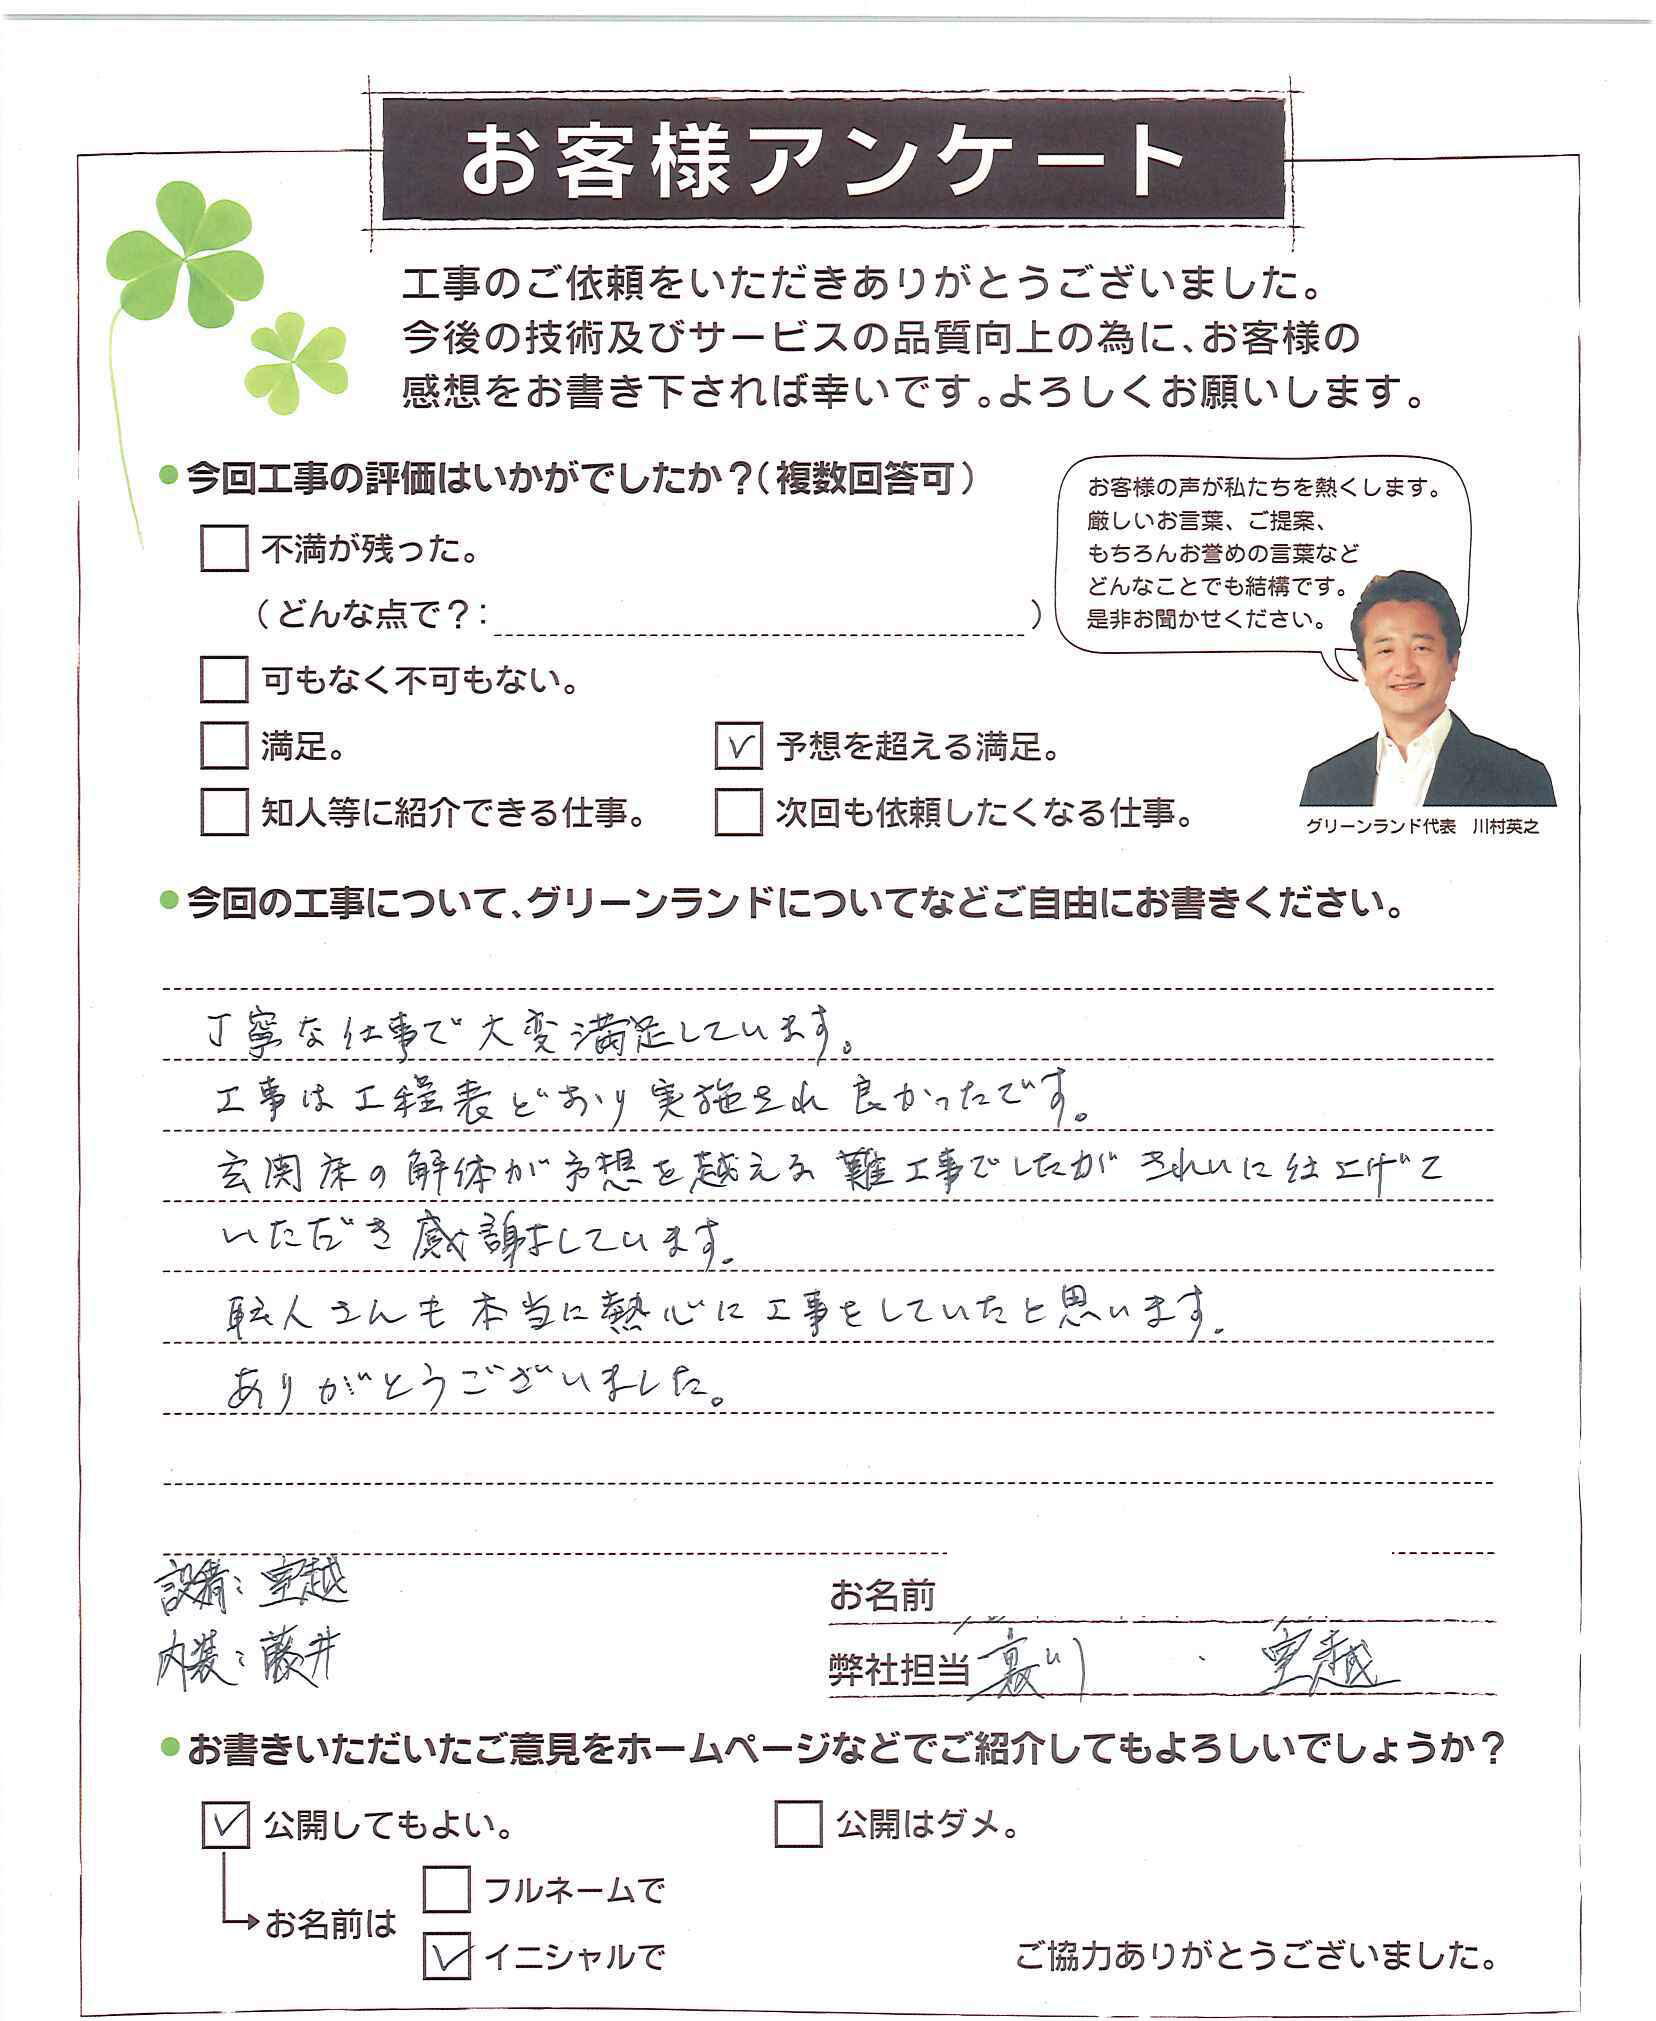 お客様アンケート
工事のご依頼をいただきありがとうございました。
今後の技術及びサービスの品質向上の為に、お客様の
感想をお書き下されば幸いです。よろしくお願いします。
●今回工事の評価はいかがでしたか？（複数回答可）
不満が残った。
（どんな点で？：　　　）
可もなく不可もない。
満足。
✓ 予想を超える満足。
知人等に紹介できる仕事。
次回も依頼したくなる仕事。
お客様の声が私たちを熱くします。
厳しいお言葉、ご提案、
もちろんお誉めの言葉など
どんなことでも結構です。
是非お聞かせください。
グリーンランド代表　川村英之
●今回の工事について、グリーンランドについてなどご自由にお書きください。
丁寧な仕事で大変満足しています。
工事は工程表どおり実施され良かったです。
玄関床の解体が予想を越える難工事でしたがきれいに仕上げて
いただき感謝しています。
職人さんも本当に熱心に工事をしていたと思います。
ありがとうございました。
設備：室越
内装：藤井
お名前
弊社担当 川・室越
●お書きいただいたご意見をホームページなどでご紹介してもよろしいでしょうか？
✓ 公開してもよい。
公開はダメ。
お名前は
フルネームで
✓ イニシャルで
ご協力ありがとうございました。